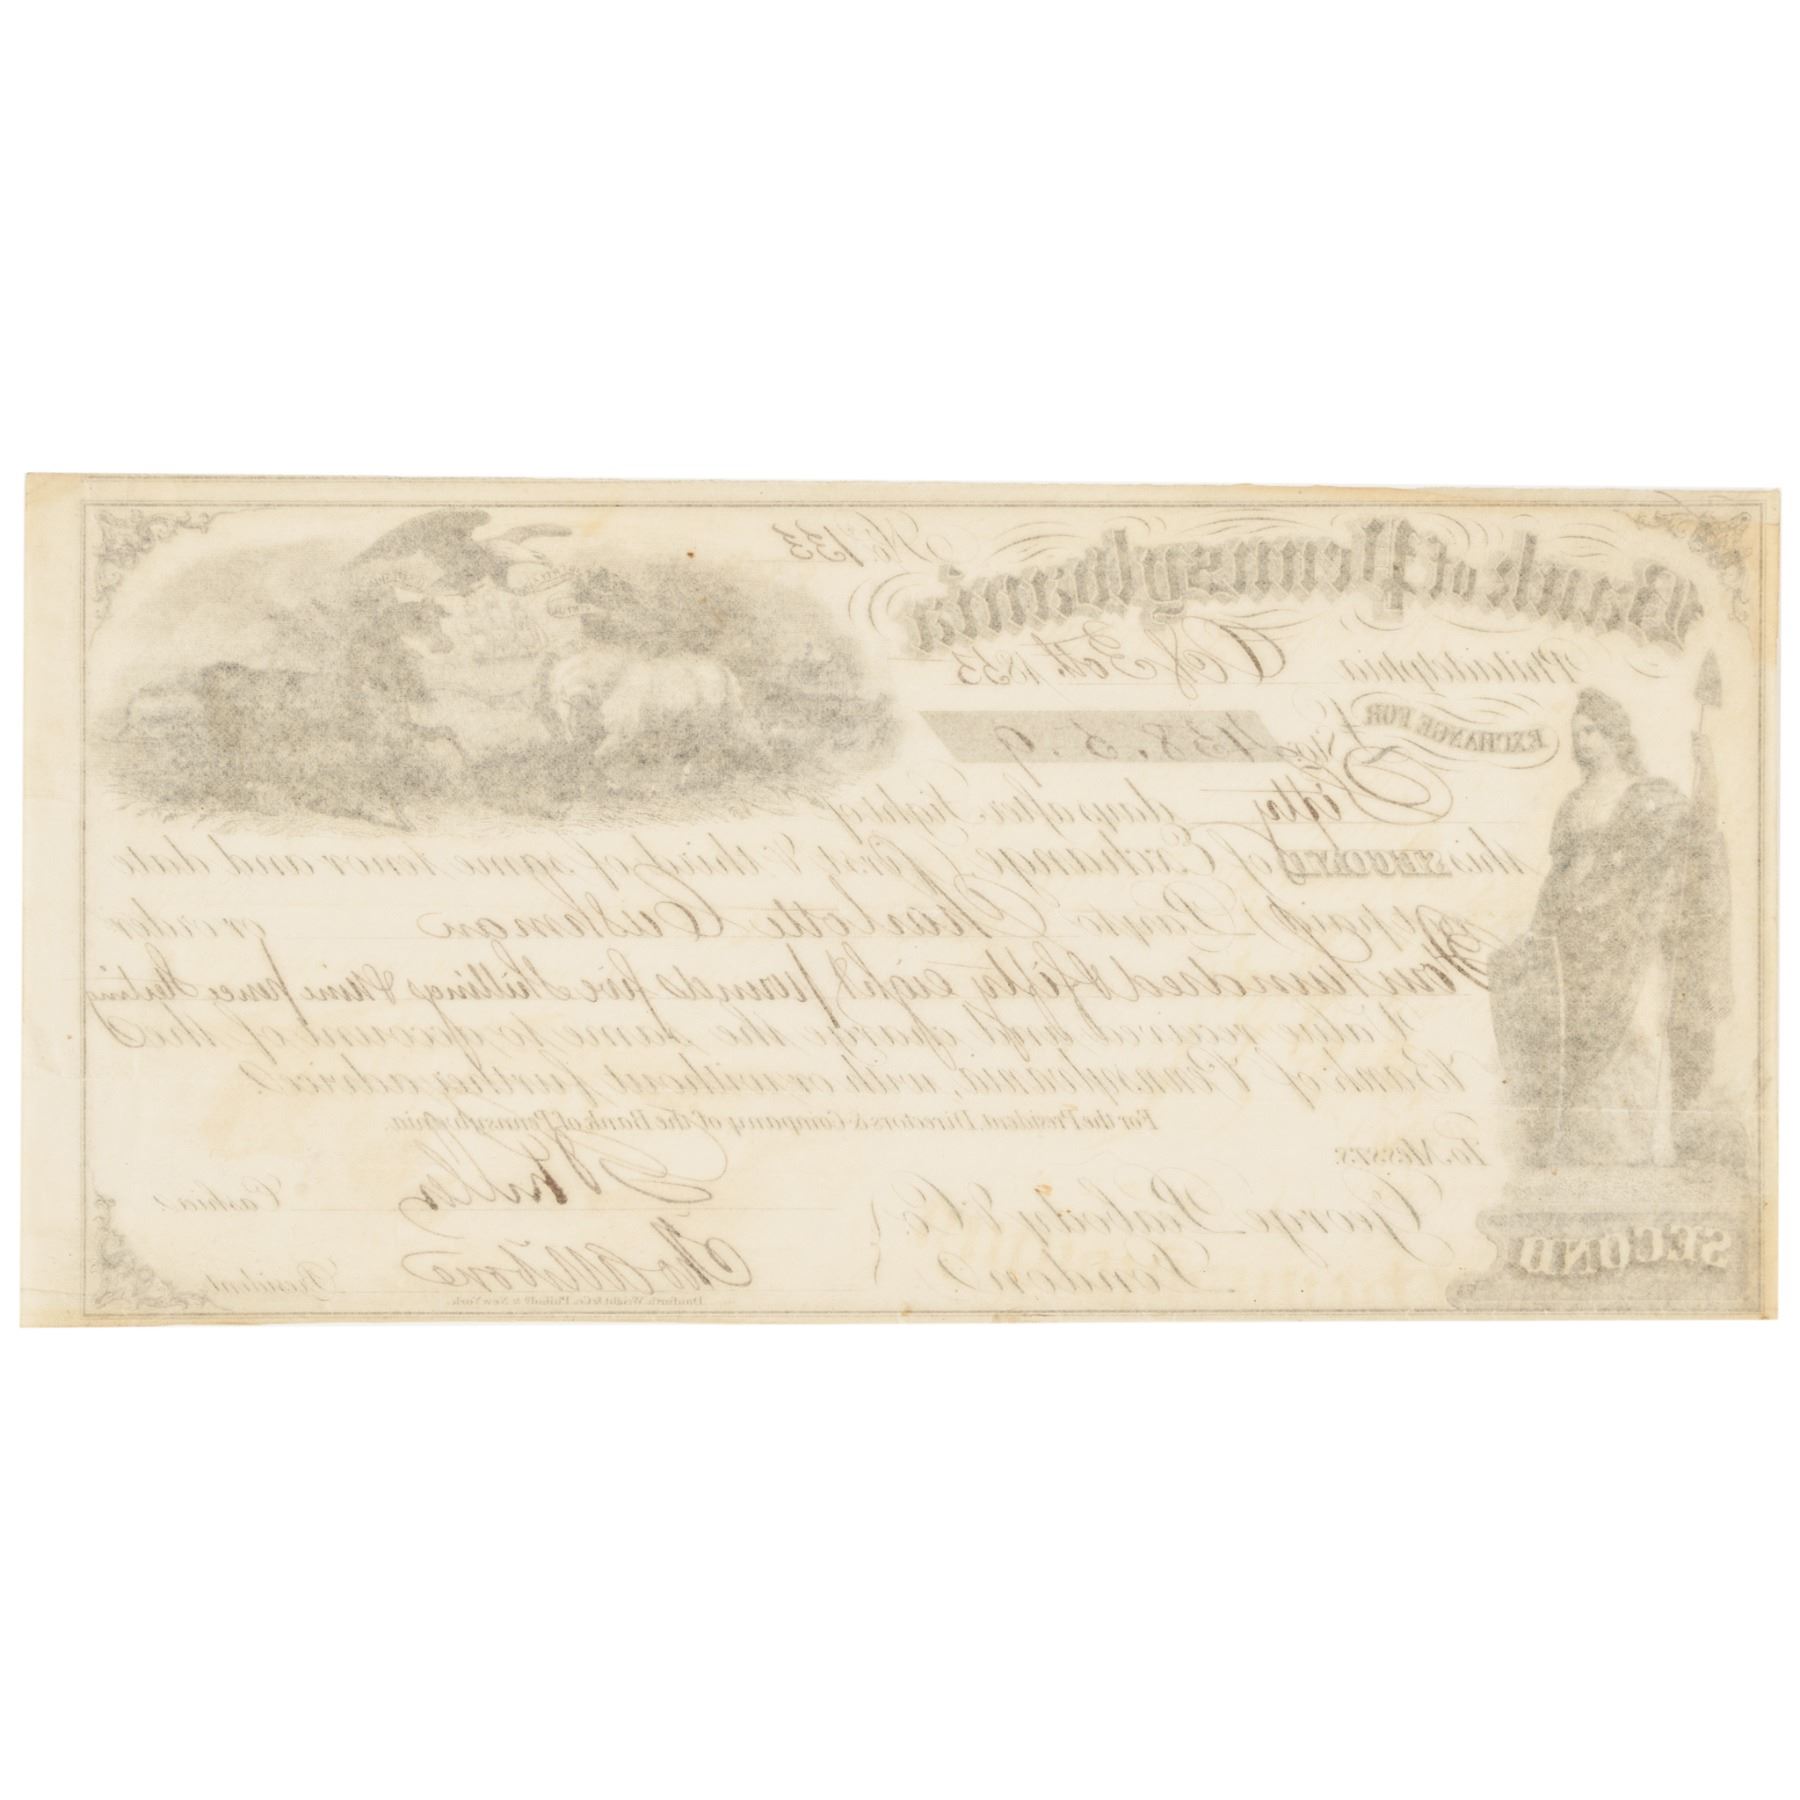 Bank of Pennsylvania
No. 133
Philadelphia Oct. 1853
EXCHANGE FOR £ Stg 458.5.9
Sixty days after Sight of
this SECOND of Exchange (first & third of same tenor and date
unpaid) Pay to Charlotte Cushman or order
Four hundred & fifty eight pounds five Shillings & nine pence Sterling
Value received and charge the same to account of the
Bank of Pennsylvania, with or without further advice.
For the President, Directors & Company of the Bank of Pennsylvania.
To Messrs.
George Peabody & Co.
London
Cashier
President
SECOND
Danforth, Wright & Co. Philada. & New York.